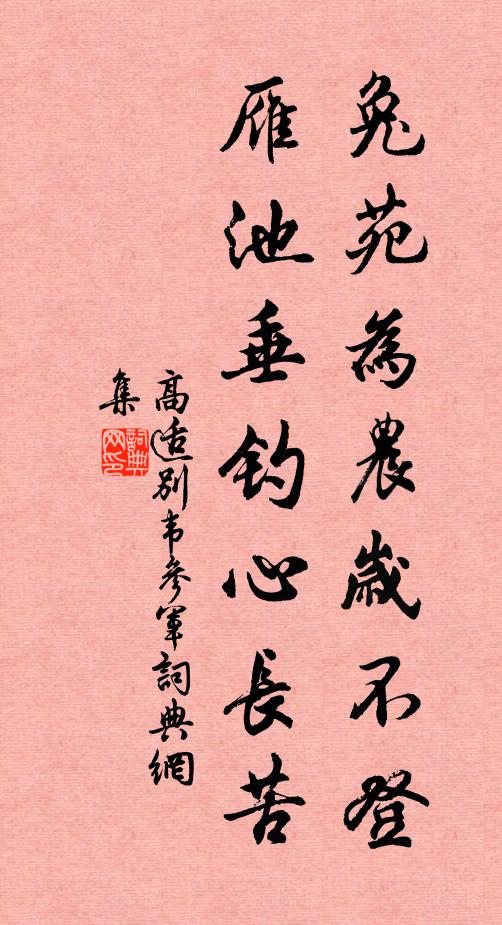 兔苑為農歲不登
雁池垂釣心長苦
高适別韦參軍詞典網
集
詞典
网印